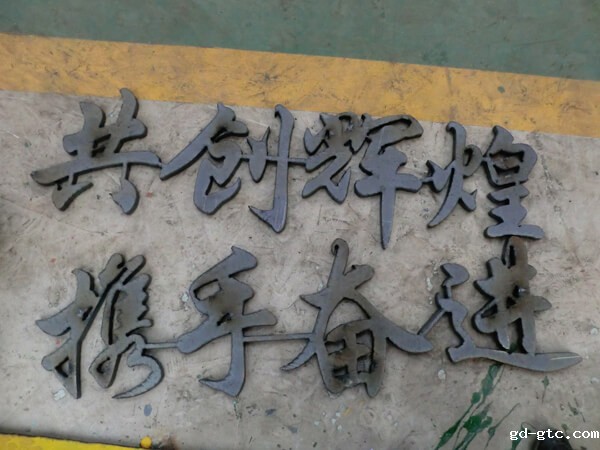 共创辉煌
携手奋进
gd-gtc.com